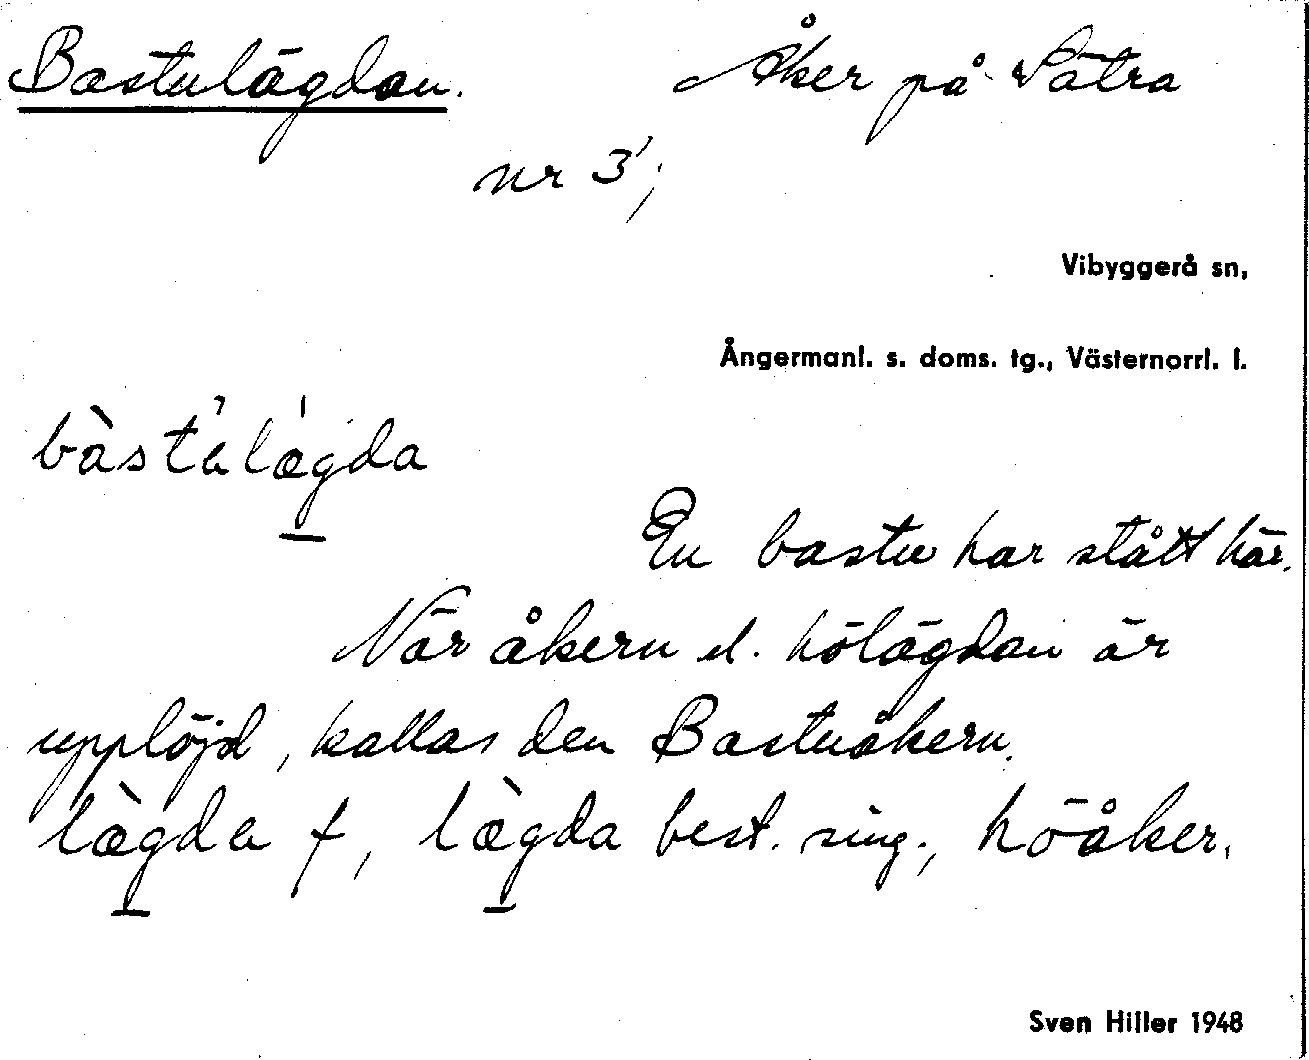 Bastulägdan. Åker på Sätra
nr 3¹;
Vibyggerå sn,
Ångermanl. s. doms. tg., Västernorrl. l.
bàstalægda
En bastu har stått här.
När åkern el. hölägdan är
upplöjd, kallas den Bastuåkern.
lægda f, lægda best. sing., höåker.
Sven Hiller 1948